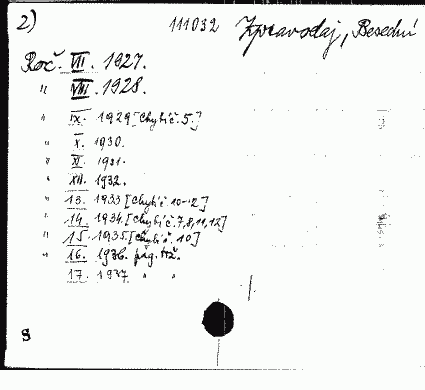 2) 111032 Zpravodaj, Besední
Roč. VII. 1927.
" VIII. 1928.
" IX. 1929 [Chybí č. 5.]
" X. 1930.
" XI. 1931.
" XII. 1932.
" 13. 1933 [Chybí č. 10-12]
" 14. 1934. [Chybí č. 7,8,11,12]
" 15. 1935. [Chybí č. 10]
" 16. 1936. pag.
17. 1937 " "
S